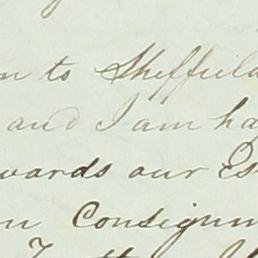 n to Sheffield
and I am ha
wards our Es
on Consignm